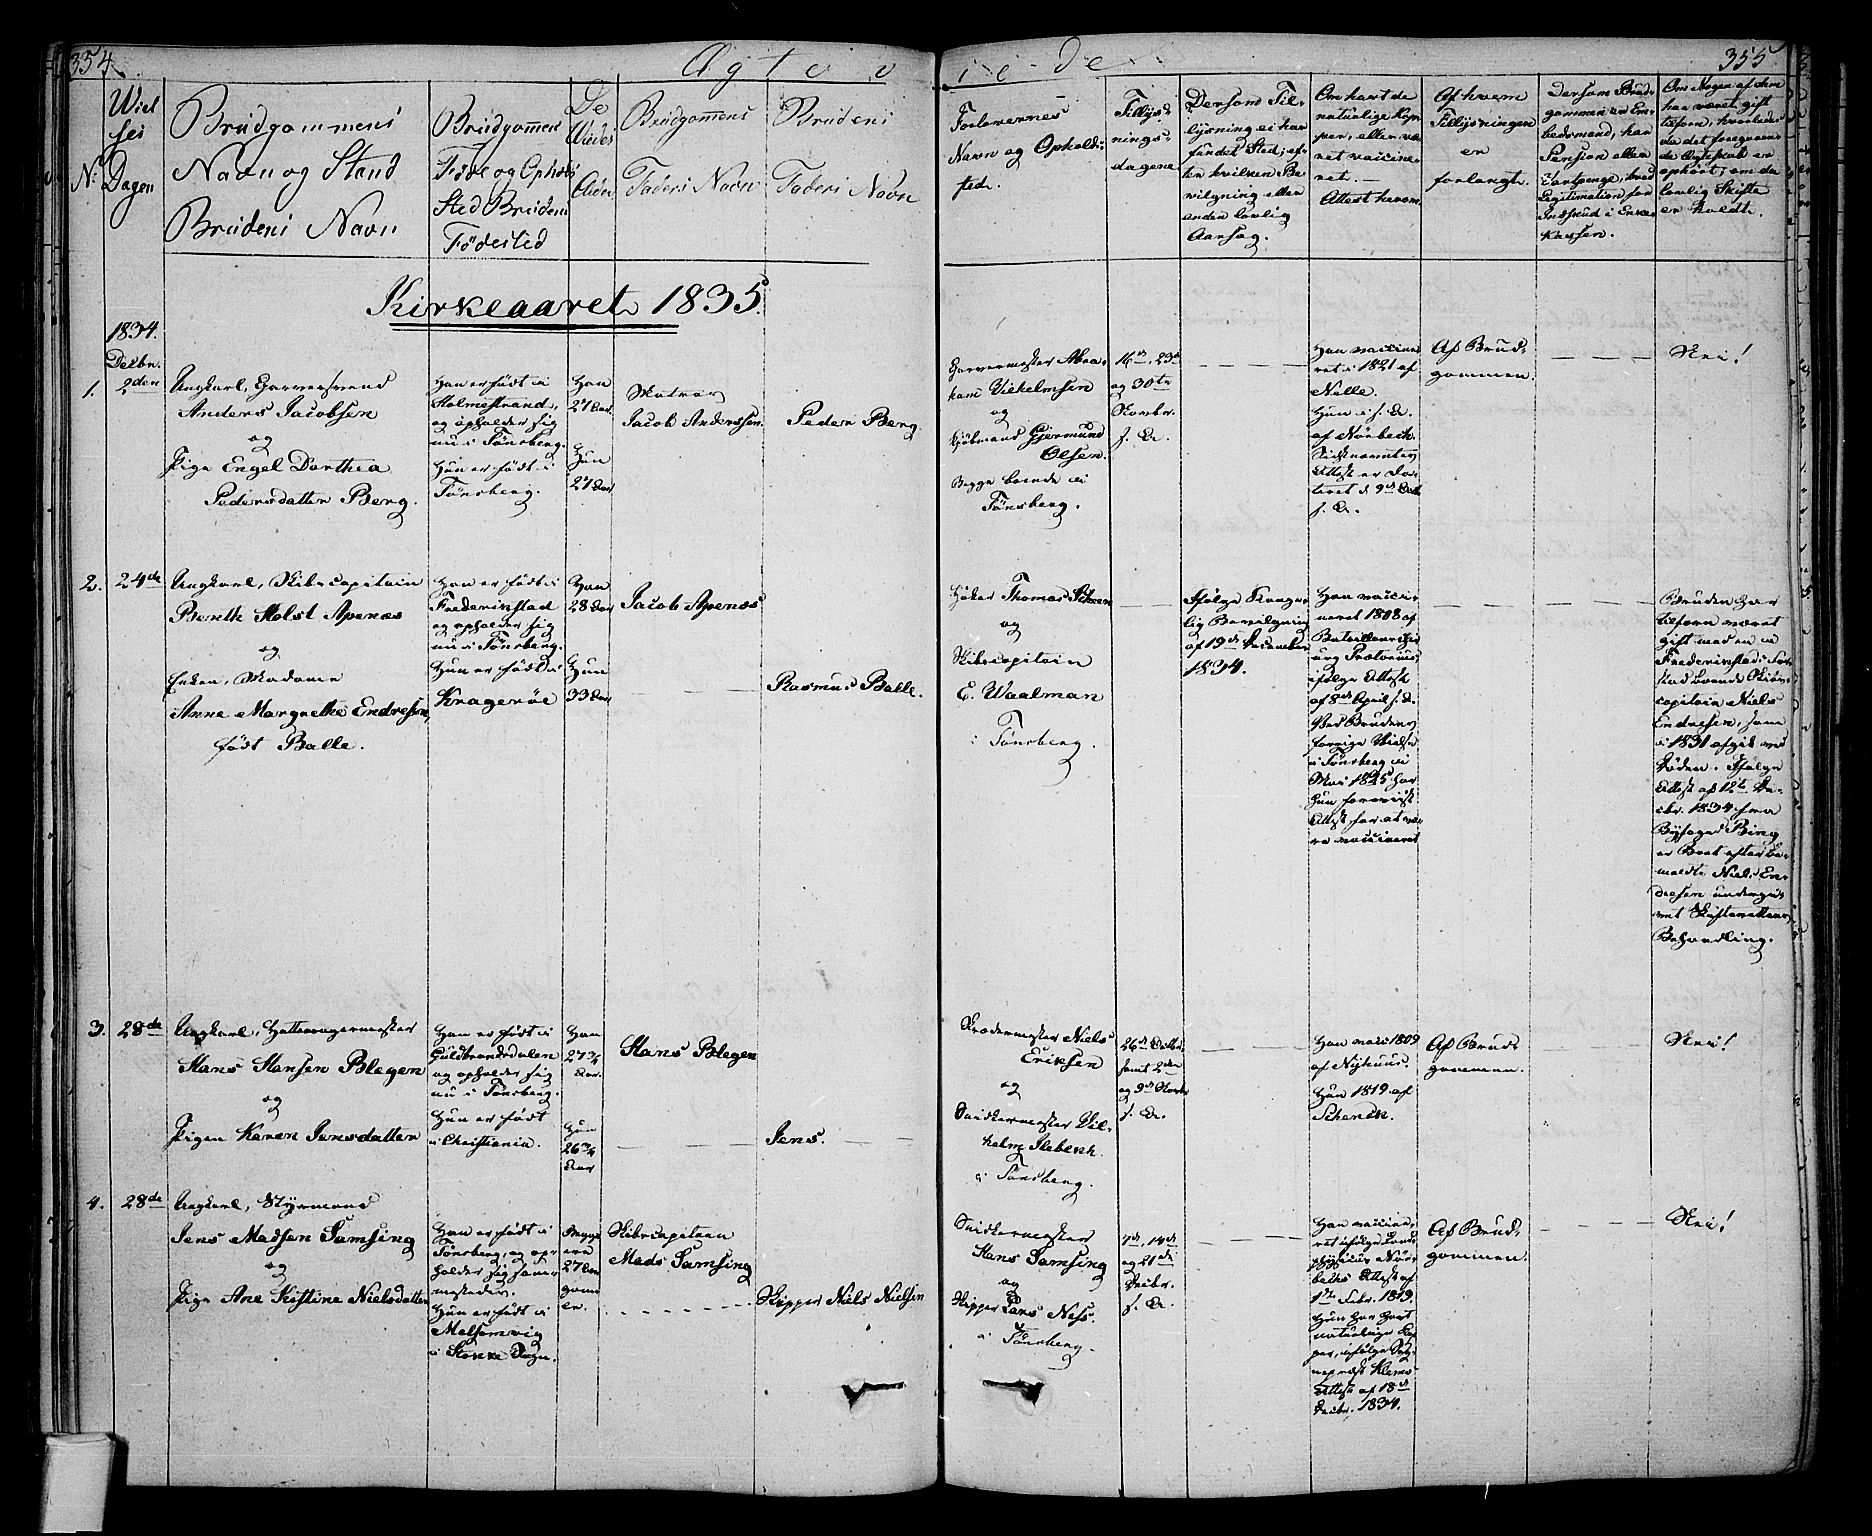 354
Ægte v
ie-de
355
N:
Viel
ses
Dagen
Brudgommens
Navn og Stand
Brudens Navn
Brudgommens
Føde og Opholds
Sted Brudens
Fødested
De
Viedes
Alder
Brudgommens
Faders Navn
Brudens
Faders Navn
Forlovernes
Navn og Opholds
sted.
Tillys
nings-
dagene
Dersom Til-
lysning ei har
fundet Sted; ef-
ter hvilken Be
vilgning eller
anden lovlig
Aarsag.
Om havt de
naturlige Kop-
per, eller væ
ret vaccine-
ret.
Attest herom.
Af hvem
Tillysningen
er
forlangt.
Dersom Brud-
gommen er Em-
bedsmand, hans
Pension eller
Legitimation for
Indskud i Enke
kassen.
Om Nogen af dem
har været gift
tilforn, hvorledes
da det foregaaende
Ægteskab er
ophørt; om da
lovlig Skifte
er holdt.
Kirkeaaret 1835.
1834.
Decbr.
1.
2den
Ungkarl, Garversvend
Anders Jacobsen
og
Pige Engel Dorthea
Pedersdatter Berg.
Han er født i
Holmestrand,
og opholder sig
nu i Tønsberg.
Hun er født i
Tønsberg.
Han
27 Aar
Hun
27 Aar
Matros
Jacob Anderssen.
Peder Berg.
Garvermester Abra-
ham Vilhelmsen
og
Kjøbmand Gjermund
Olsen.
Begge boende i
Tønsberg.
16de, 23de
og 30te
Novbr.
f. A.
Han vaccine
ret i 1821 af
Nelle.
Hun i s. A.
af Nørbech.
Sidstnævntes
Attest er da-
teret d. 9de Oct.
f. A.
Af Brud-
gommen.
Nei!
2.
24de
Ungkarl, Skibscapitain
Benth Holst Apenæs
og
Enken, Madame
Anne Margrethe Endresen,
født Balle.
Han er født i
Frederikstad
og opholder sig
nu i Tønsberg.
Hun er født i
Kragerøe
Han
28 Aar
Hun
33 Aar
Jacob Apenæs
Rasmus Balle.
Høker Thomas
og
Skibscapitain
E. Waalman
i Tønsberg.
Ifølge Konge-
lig Bevilgning
af 19de December
1834.
Han vacci-
neret 1808 af
Bataillonschir
urg Prætorius,
ifølge Attest
af 8de April s. A.
Ved Brudens
forrige Vielse
i Tønsberg i
Mai 1825 har
hun foreviist
Attest for at væ-
re vaccineret
Bruden har
tilforn været
gift med en i
Frederikstads For-
stad boende Skibs-
capitain Niels
Endresen, som
i 1831 afgik ved
Døden. Ifølge
Attest af 12te De-
cbr. 1834 fra
Byfoged Bing
er Boet efter be-
meldte Niels En-
dresen undergi-
vet Skifterettens
Behandling.
3.
28de
Ungkarl, Hattemagermester
Hans Hansen Blegen
og
Pigen Karen Jensdatter
Han er født i
Guldbrandsdalen
og opholder sig
nu i Tønsberg.
Hun er født
i Christiania.
Han
27 3/4
Aar.
Hun
26 3/4
Aar
Hans Blegen
Jens.
Skrædermester Niels
Eriksen
og
Snidkermester Vil-
helm Slebenk.
i Tønsberg.
26de Octbr.
samt 2den
og 9de Novbr.
f. A.
Han vacc. 1809
af Nyhuus.
Hun 1819 af
Schenck.
Af Brud-
gommen.
Nei!
4.
28de
Ungkarl, Styrmand
Jens Madsen Samsing
og
Pige Ane Kistine Nielsdatter
Han er født i
Tønsberg, og op-
holder sig sam-
mesteds.
Hun er født i
Melsomvig
i Stokke Sogn.
Begge
ere
27 Aar
gam
le.
Skibscapitain
Mads Samsing
Skipper Niels Nielsen
Snidkermester
Hans Samsing
og
Skipper Lars Ness.
i Tønsberg.
7de, 14de
og 21de
Decbr.
f. A.
Han vaccine-
ret ifølge Land-
physicus Nør-
bechs Attest af
1ste Febr. 1819.
Hun har havt
naturlige Kop-
per, ifølge Sog-
nepræst Klems
Attest af 18de
Decbr. 1834.
Af Brud-
gommen.
Nei!